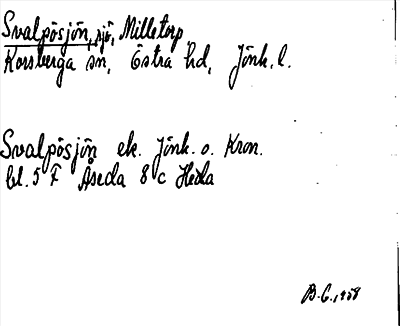 Svalpösjön, sjö, Milletorp
Korsberga sn, Östra hd, Jönk. l.
Svalpösjön ek. Jönk. o. Kron.
bl. 5 F Åseda 8 c Hedla
B. G.